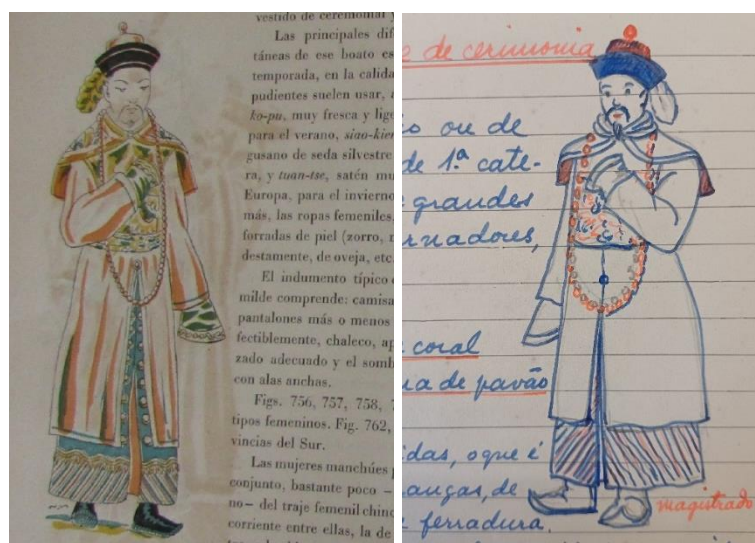 vestido de ceremonial y
Las principales dif
táneas de ese boato es
temporada, en la calida
pudientes suelen usar, a
ko-pu, muy fresca y lige
para el verano, siao-kien
gusano de seda silvestre
ra, y tuan-tse, satén mu
Europa, para el invierno
más, las ropas femeniles,
forradas de piel (zorro, n
destamente, de oveja, etc
El indumento típico
milde comprende: camisa
pantalones más o menos
fectiblemente, chaleco, ap
zado adecuado y el somb
con alas anchas.
Figs. 756, 757, 758, 7
tipos femeninos. Fig. 762,
vincias del Sur.
Las mujeres manchúes p
conjunto, bastante poco –
no– del traje femenil chino
corriente entre ellas, la de
e de cerimonia
ou de
de 1.ª cate-
grandes
rnadores,
coral
a de pavão
idas, o que é
angas, de
ferradura.
magistrado